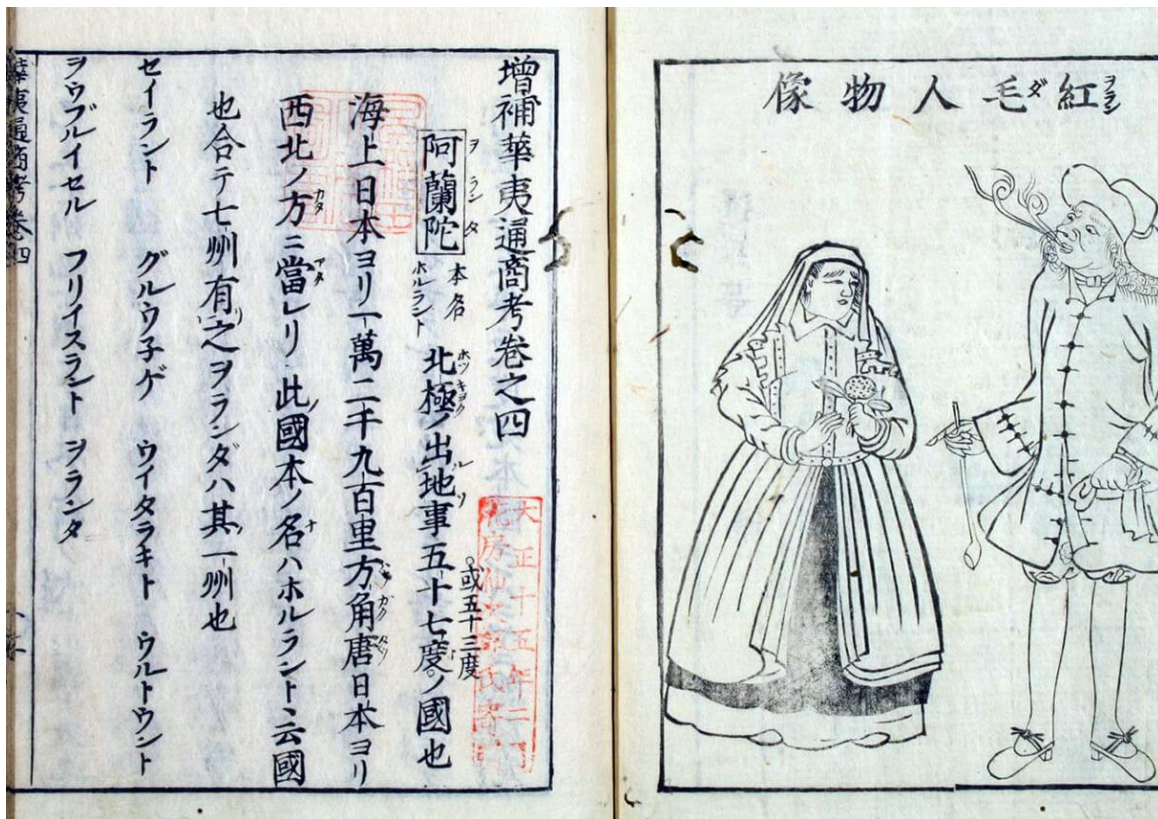 紅毛人物像
ヲラン
ダ
增補華夷通商考卷之四
阿蘭陀
ヲランタ
本名
ホルラント
北極ノ出地事五十七度ノ國也
ホツキヨク
或五十三度
海上日本ヨリ一萬二千九百里方角唐日本ヨリ
西北ノ方ニ當レリ此國本ノ名ハホルラントト云國
カタ
アタ
ナ
也合テ七州有之ヲランダハ其一州也
セイラント グルウ子ゲ ウイタラキト ウルトウント
ヲウブルイセル フリイスラント ヲランタ
華夷通商考卷四
大正十五年二月